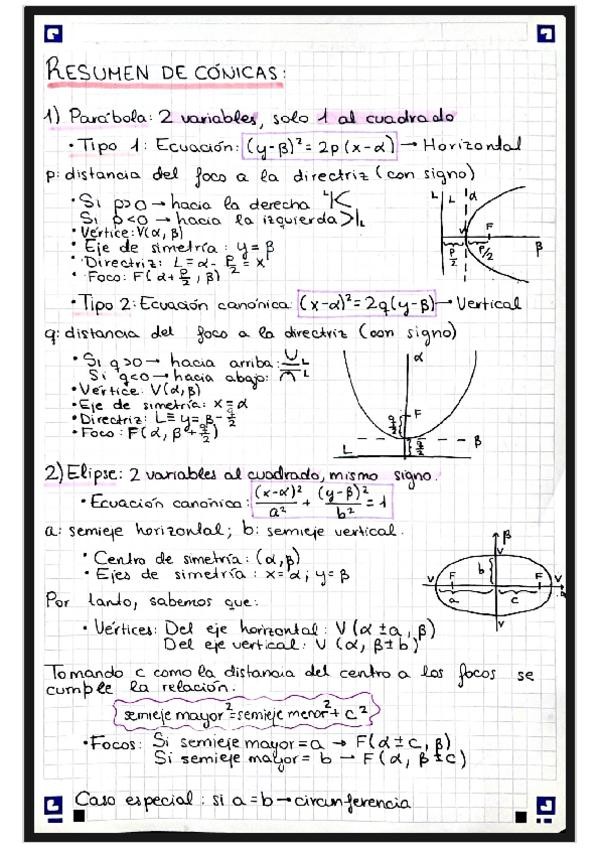 RESUMEN DE CÓNICAS:
1) Parábola: 2 variables, solo 1 al cuadrado
• Tipo 1: Ecuación: (y-β)² = 2p (x-α) → Horizontal
p: distancia del foco a la directriz (con signo)
• Si p>0 → hacia la derecha
Si p<0 → hacia la izquierda
• Vértice: V(α, β)
• Eje de simetría: y = β
• Directriz: L = α - p/2 = x
• Foco: F(α + p/2, β)
L L α
V F
β
p/2 p/2
• Tipo 2: Ecuación canónica: (x-α)² = 2q (y-β) → Vertical
q: distancia del foco a la directriz (con signo)
• Si q>0 → hacia arriba: L
Si q<0 → hacia abajo: L
• Vértice: V(α, β)
• Eje de simetría: x = α
• Directriz: L ≡ y = β - q/2
• Foco: F(α, β + q/2)
α
q/2 F
β
L q/2
2) Elipse: 2 variables al cuadrado, mismo signo.
• Ecuación canónica: (x-α)²/a² + (y-β)²/b² = 1
a: semieje horizontal; b: semieje vertical.
• Centro de simetría: (α, β)
• Ejes de simetría: x = α; y = β
β
V
b
V F F V
a c
V
Por tanto, sabemos que:
• Vértices: Del eje horizontal: V (α ± a, β)
Del eje vertical: V (α, β ± b)
Tomando c como la distancia del centro a los focos se
cumple la relación:
semieje mayor² = semieje menor² + c²
• Focos: Si semieje mayor = a → F(α ± c, β)
Si semieje mayor = b → F (α, β ± c)
Caso especial: si a = b → circunferencia